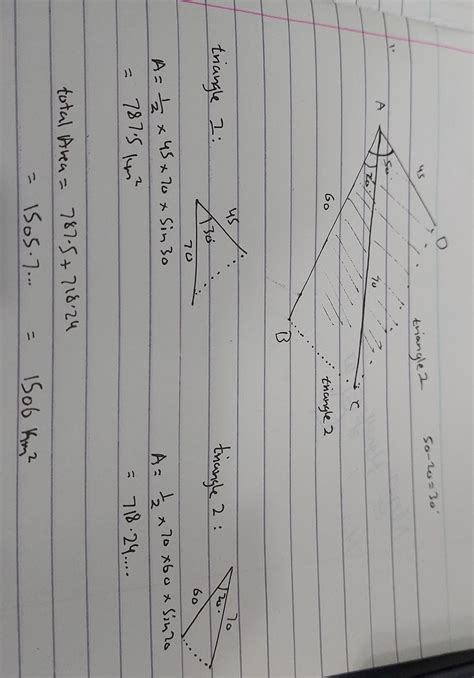 50-20=30°
triangle 1
D
45
A
50°
20°
70
60
C
B
triangle 2
triangle 1:
45
30°
70
A = 1/2 × 45 × 70 × sin 30
= 787.5 km²
triangle 2:
70
20°
60
A = 1/2 × 70 × 60 × sin 20
= 718.24....
total Area = 787.5 + 718.24
= 1505.7... = 1506 km²